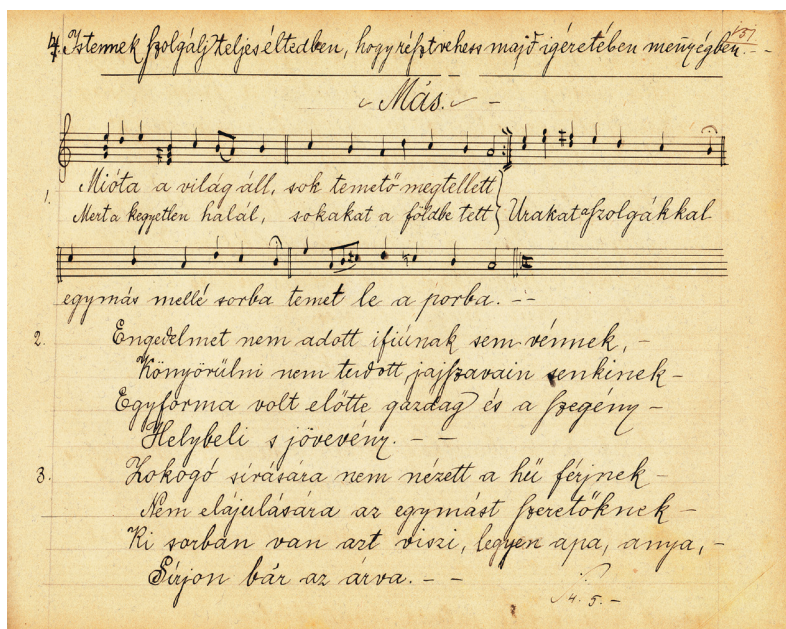 4. Istennek szolgálj teljes éltedben, hogy részt vehess majd igéretében menyégben. -
151
Más. -
1. Mióta a világ áll, sok temető megtellett
Mert a kegyetlen halál, sokakat a földbe tett } Urakat a szolgákkal
egymás mellé sorba temet le a porba. - -
2. Engedelmet nem adott ifiúnak sem vénnek, -
Könyörülni nem tudott, jajszavain senkinek -
Egyforma volt előtte gazdag és a szegény -
Helybeli s jövevény. - -
3. Zokogó sírására nem nézett a hű férjnek -
Nem elájulására az egymást szeretőknek -
Ki sorban van azt viszi, legyen apa, anya, -
Sírjon bár az árva. - -
4. 5. -